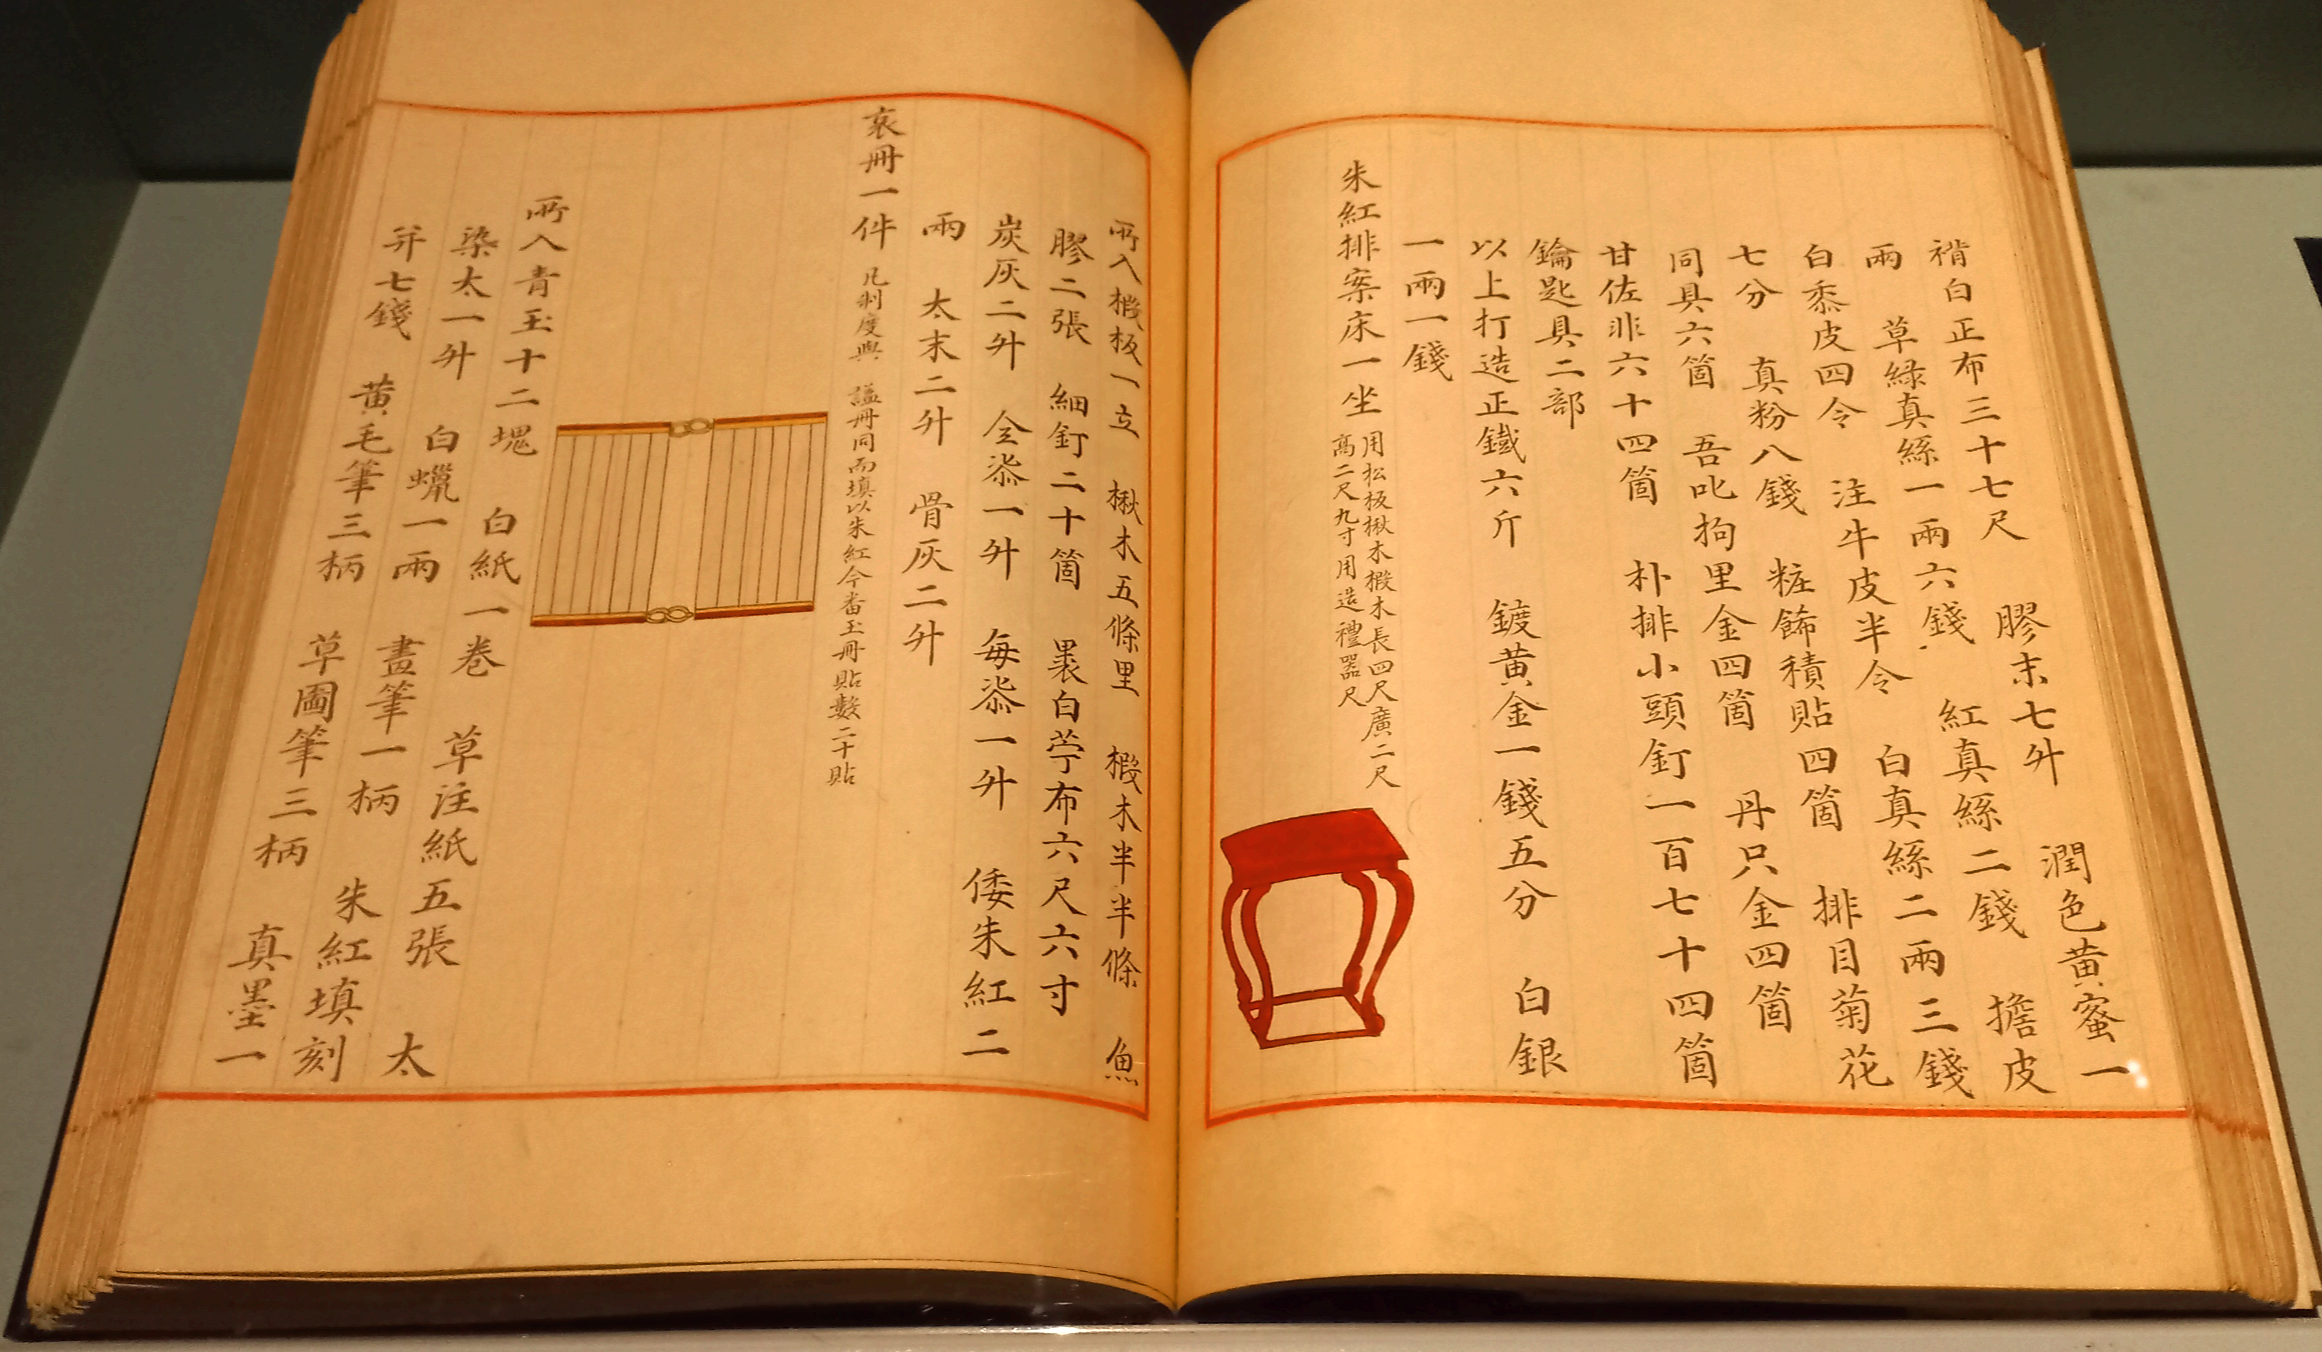 褙白正布三十七尺 膠末七升 潤色黃蜜一
兩 草綠真絲一兩六錢 紅真絲二錢 擔皮
白黍皮四令 注牛皮半令 白真絲二兩三錢
七分 真粉八錢 粧餙積貼四箇 排目菊花
同具六箇 吾叱拘里金四箇 丹只金四箇
甘佐非六十四箇 朴排小頭釘一百七十四箇
鑰匙具二部
以上打造正鐵六斤 鍍黃金一錢五分 白銀
一兩一錢
朱紅排案床一坐
用松板楸木椴木長四尺廣二尺
高二尺九寸用造禮器尺
所入椴板一立 楸木五條里 椴木半半條 魚
膠二張 細釘二十箇 裹白苧布六尺六寸
炭灰二升 全桼一升 每桼一升 倭朱紅二
兩 太末二升 骨灰二升
哀冊一件 凡制度與 謚冊同而填以朱紅今番玉冊貼數二十貼
所入青玉十二塊 白紙一卷 草注紙五張 太
染太一升 白蠟一兩 畫筆一柄 朱紅填刻
并七錢 黃毛筆三柄 草圖筆三柄 真墨一